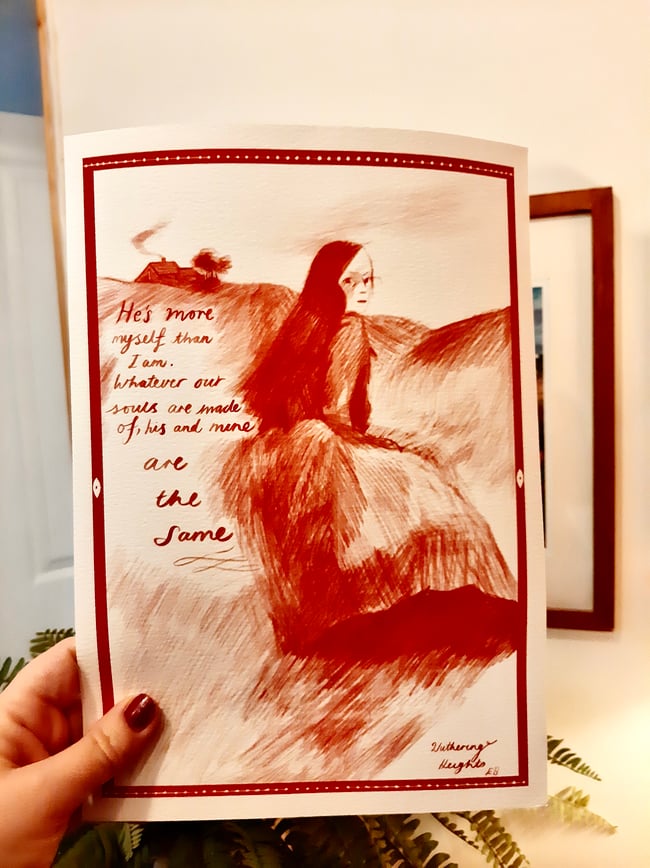 He's more
myself than
I am.
Whatever our
souls are made
of, his and mine
are
the
Same
Wuthering
Heights
EB